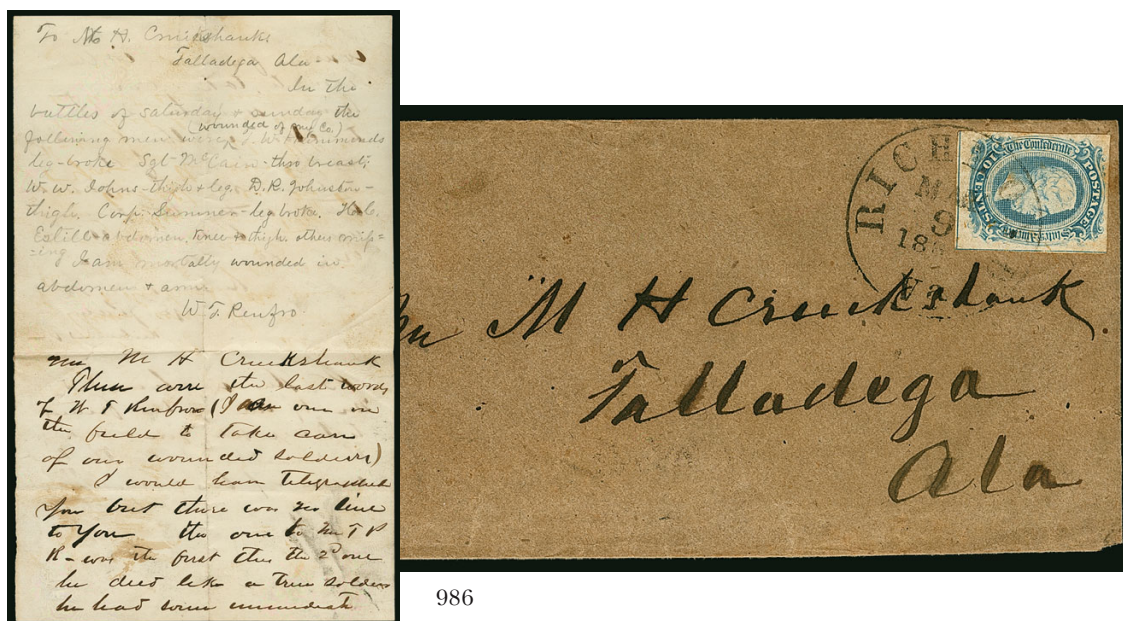 To M. H. Cruikshanks
Talladega Ala
In the
battles of saturday & sunday the
following men were (wounded of my Co.) J. W. Hammonds
leg-broke Sgt McCain-thro breast;
W. W. Johns-thigh & leg. D. R. Johnston-
thigh. Corp. Sumner-leg broke. H. C.
Estill-abdomen, knee & thigh. others miss=
=ing I am mortally wounded in
abdomen & arm
W. T. Renfro
M H Cruckshank
These are the last words
of W T Renfro (I am one in
the field to take care
of our wounded soldiers)
I would have telegraphed
You but there was no line
to You the one to T P
R- was the first this the 2d one
he died like a true soldier
he had some
M H Cruckshank
Talladega
Ala
RICH
MA
9
186
VA
The Confederate
States of America
POSTAGE
10 CENTS
986